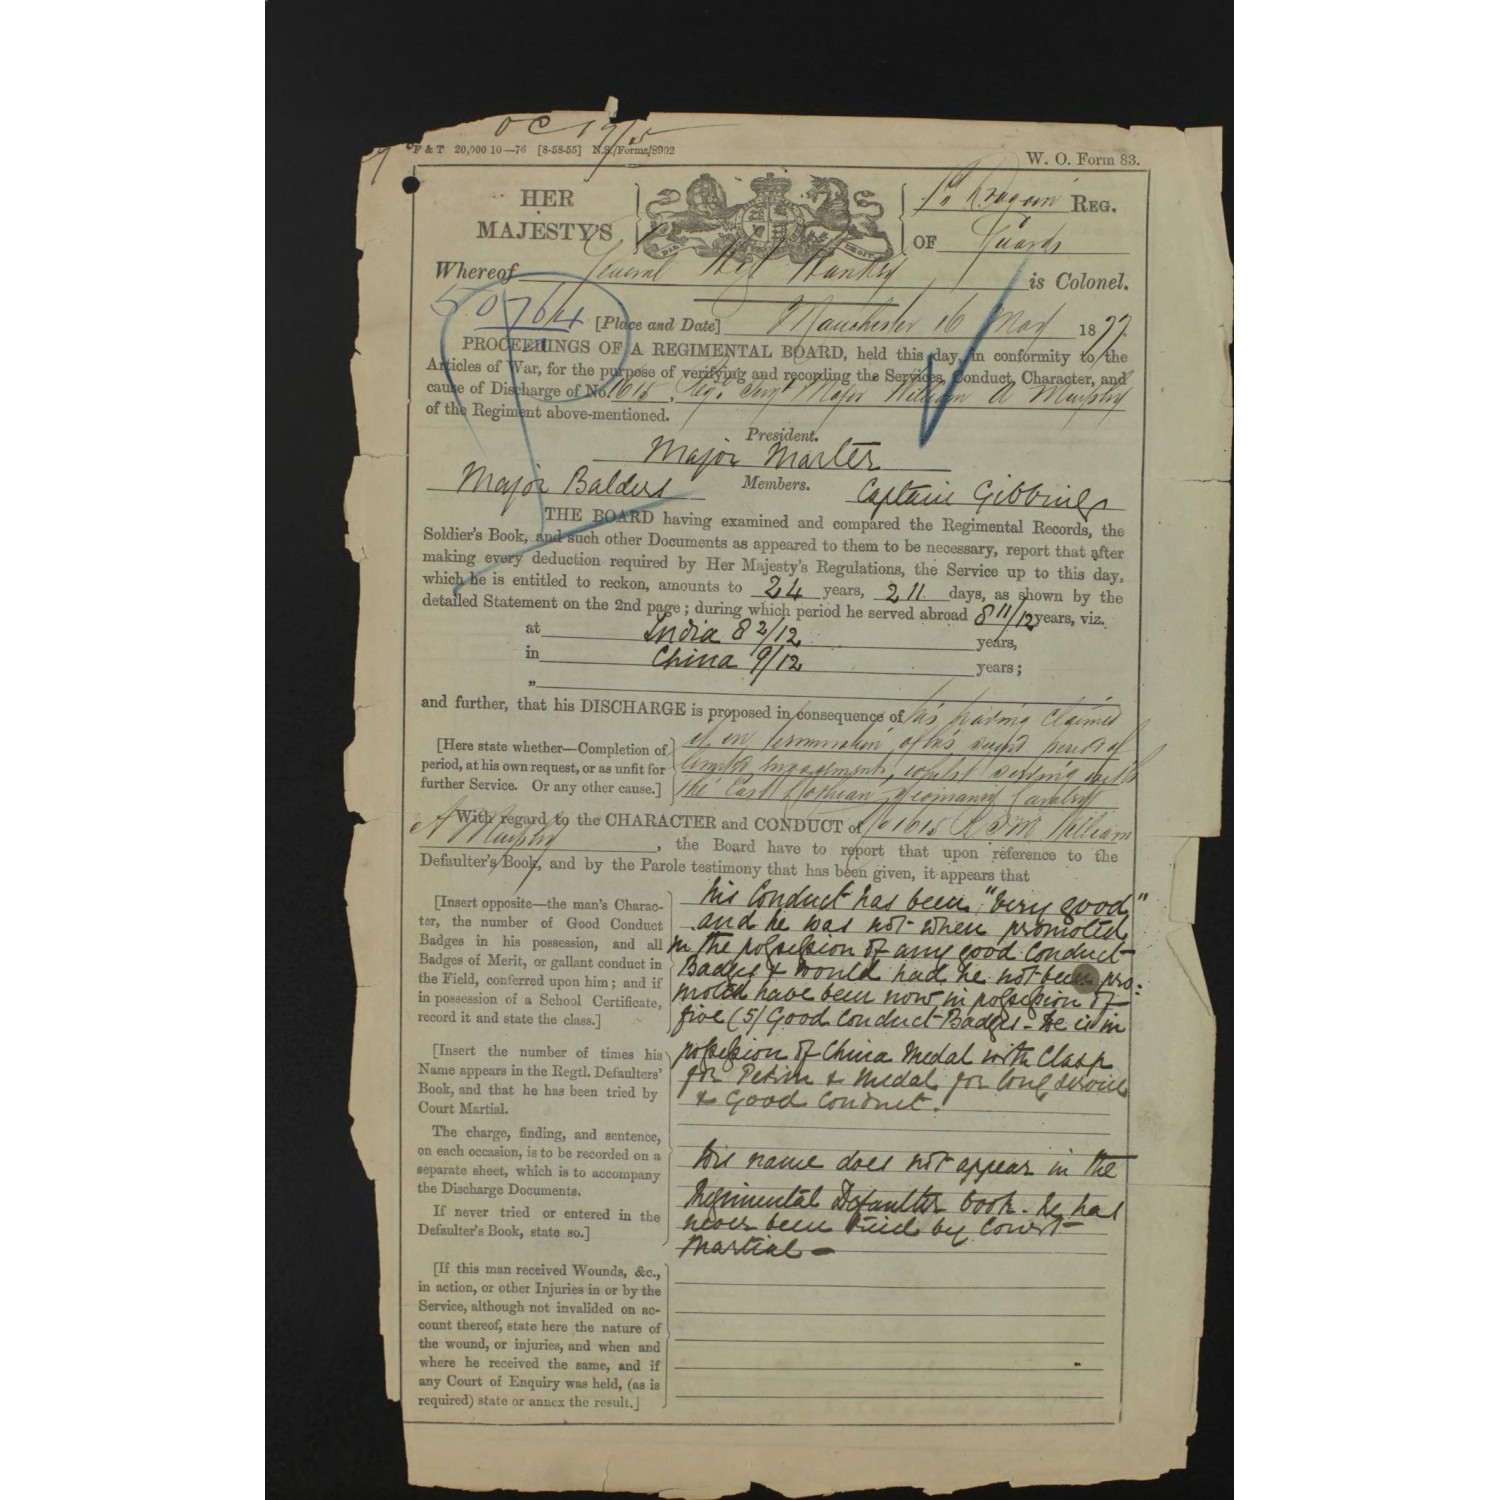 OC 19/15
F & T 20,000 10—76 [8-58-55] N.S./Forms/S902
W. O. Form 83.
HER
MAJESTY'S
1st Dragoon REG.
OF Guards
Whereof General Hankey is Colonel.
50764
[Place and Date] Manchester 16 May 1877.
PROCEEDINGS OF A REGIMENTAL BOARD, held this day, in conformity to the
Articles of War, for the purpose of verifying and recording the Services, Conduct, Character, and
cause of Discharge of No. 1615, Regl. Sergt Major William A Murphy
of the Regiment above-mentioned.
President.
Major Marter
Members.
Major Balders Captain Gibbings
THE BOARD having examined and compared the Regimental Records, the
Soldier's Book, and such other Documents as appeared to them to be necessary, report that after
making every deduction required by Her Majesty's Regulations, the Service up to this day,
which he is entitled to reckon, amounts to 24 years, 211 days, as shown by the
detailed Statement on the 2nd page; during which period he served abroad 8 11/12 years, viz.
at India 8 2/12 years,
in China 9/12 years;
"
and further, that his DISCHARGE is proposed in consequence of his having claimed
it on termination of his second period of
limited engagement, whilst serving with
the East Lothian Yeomanry Cavalry
[Here state whether—Completion of
period, at his own request, or as unfit for
further Service. Or any other cause.]
With regard to the CHARACTER and CONDUCT of No 1615 R.S.M. William
A Murphy, the Board have to report that upon reference to the
Defaulter's Book, and by the Parole testimony that has been given, it appears that
[Insert opposite—the man's Charac-
ter, the number of Good Conduct
Badges in his possession, and all
Badges of Merit, or gallant conduct in
the Field, conferred upon him; and if
in possession of a School Certificate,
record it and state the class.]
his Conduct has been "very good"
and he was not when promoted
in the possession of any good Conduct
Badges & would had he not been pro-
moted have been now in possession of
five (5) Good Conduct Badges - He is in
possession of China Medal with Clasp
for Pekin & Medal for long service
& Good Conduct.
[Insert the number of times his
Name appears in the Regtl. Defaulters'
Book, and that he has been tried by
Court Martial.
The charge, finding, and sentence,
on each occasion, is to be recorded on a
separate sheet, which is to accompany
the Discharge Documents.
If never tried or entered in the
Defaulter's Book, state so.]
His name does not appear in the
Regimental Defaulter book. He has
never been tried by Court
Martial -
[If this man received Wounds, &c.,
in action, or other Injuries in or by the
Service, although not invalided on ac-
count thereof, state here the nature of
the wound, or injuries, and when and
where he received the same, and if
any Court of Enquiry was held, (as is
required) state or annex the result.]